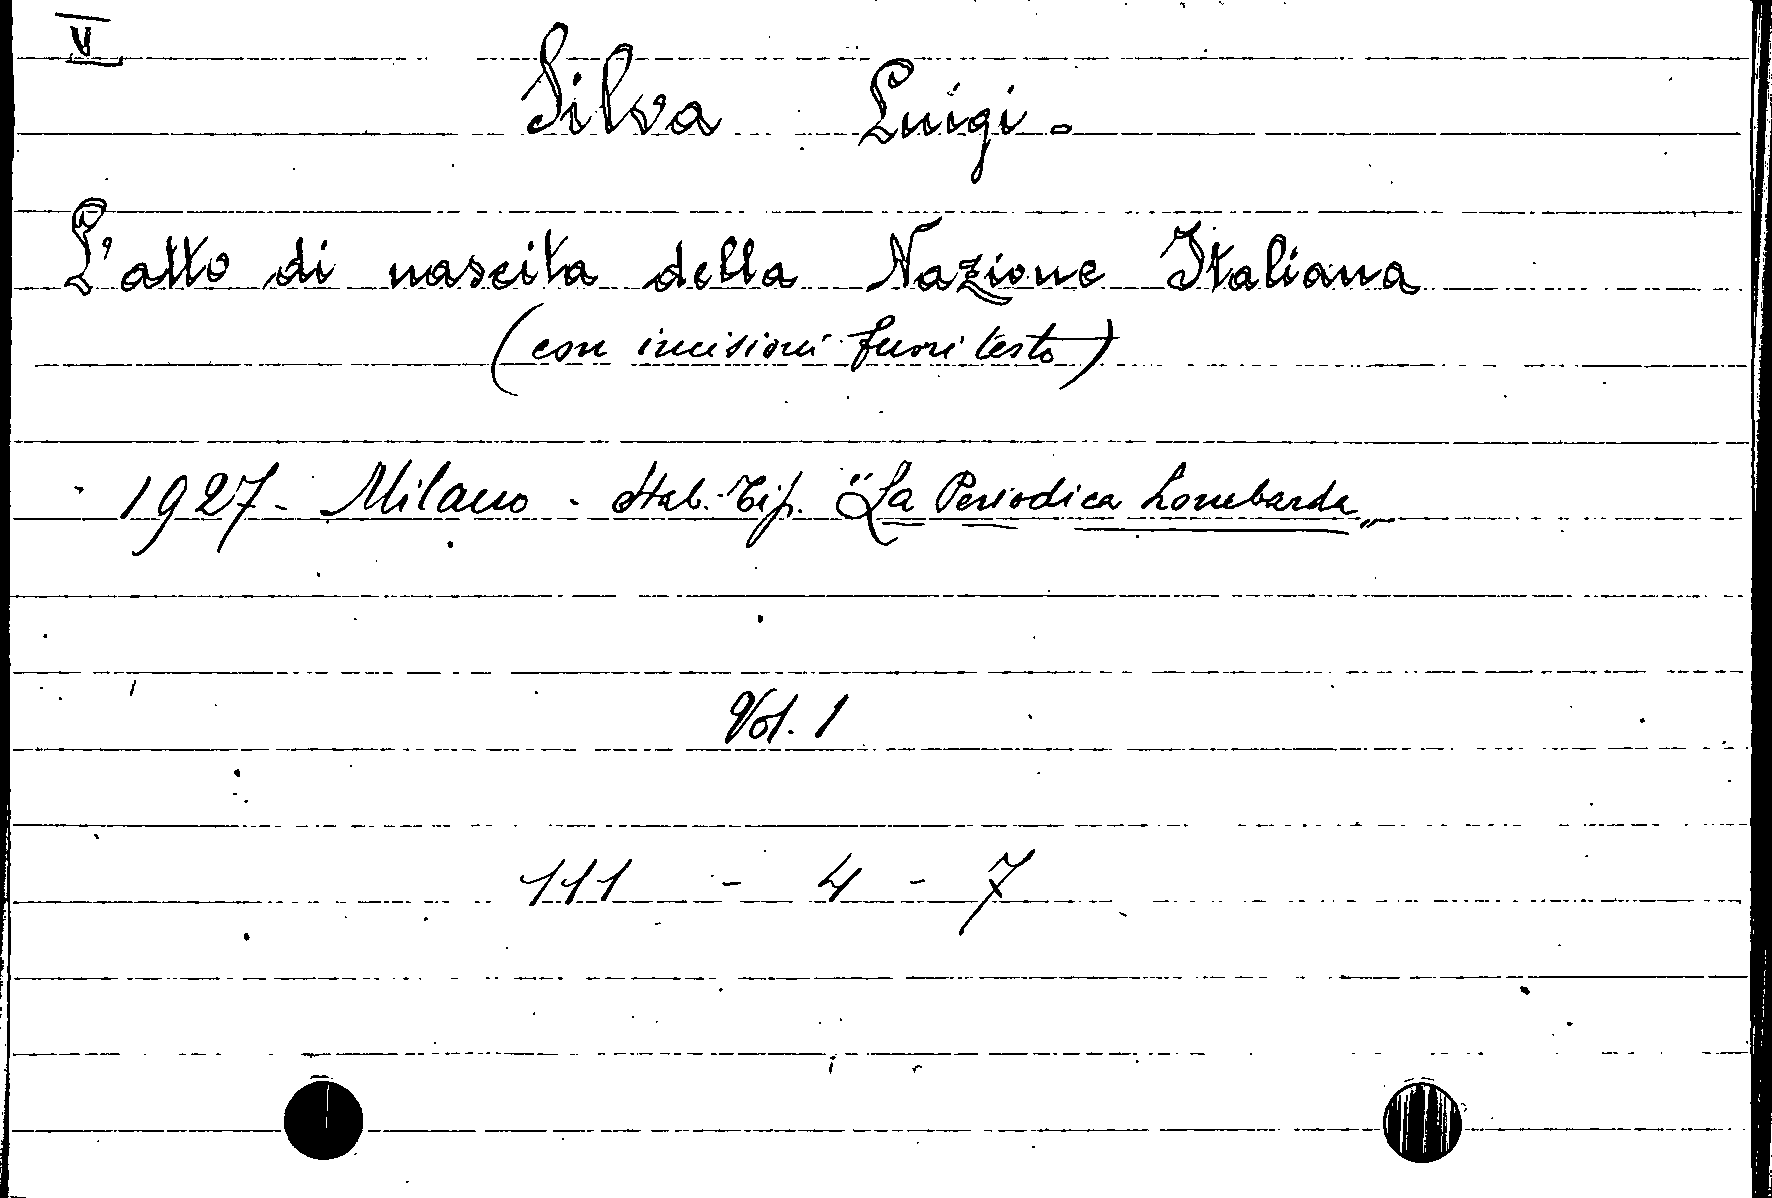 V
Silva Luigi.
L'atto di nascita della Nazione Italiana
(con incisioni fuori testo)
1927 - Milano - Stab. Tip. "La Periodica Lombarda"
Vol. 1
111 - 4 - 7